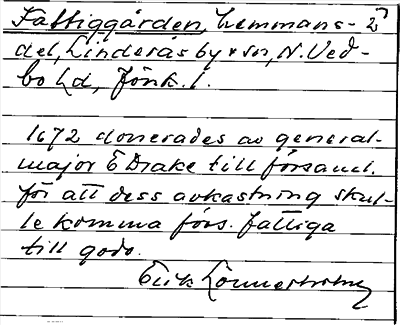 Fattiggården, hemmans-
del, Linderås by o sn, N. Ved-
bo hd, Jönk. l.
1672 donerades av general-
major E Drake till församl.
för att dess avkastning skul-
le komma förs. fattiga
till godo.
Erik